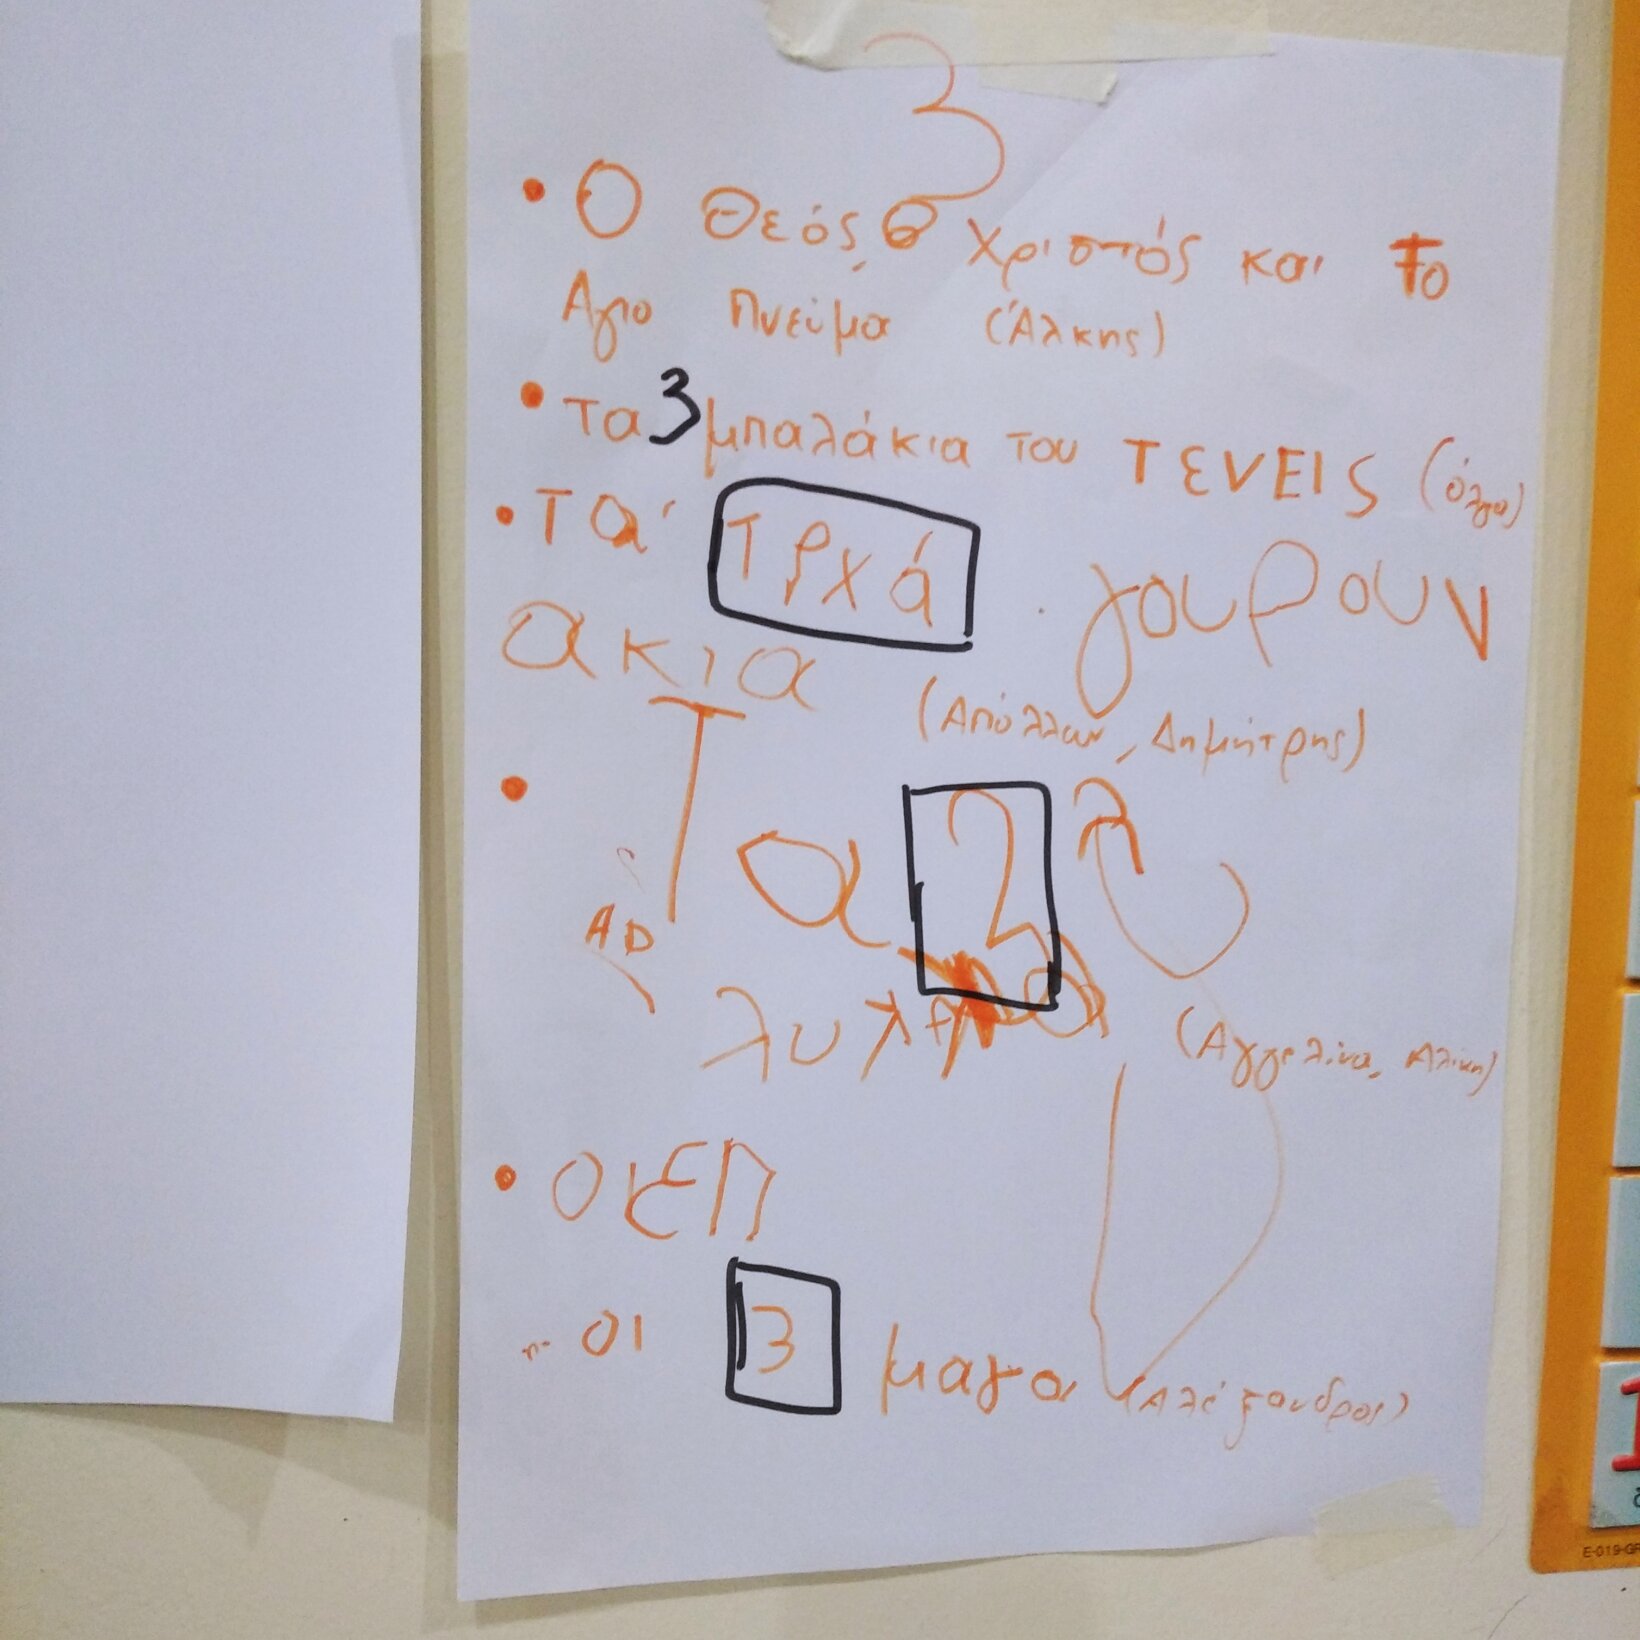 3
• Ο Θεός, ο Χριστός και το
Αγιο Πνεύμα (Άλκης)
• Τα 3 μπαλάκια του ΤΕΝΕΙS (όλγα)
• Τα τρχά γουρουν
ακια
(Απόλλων, Δημήτρης)
• Τα 3
λυκ
(Αγγελίνα, Αλίκη)
•
οι 3 μαγοι (Αλέξανδρος)
E-019-GR